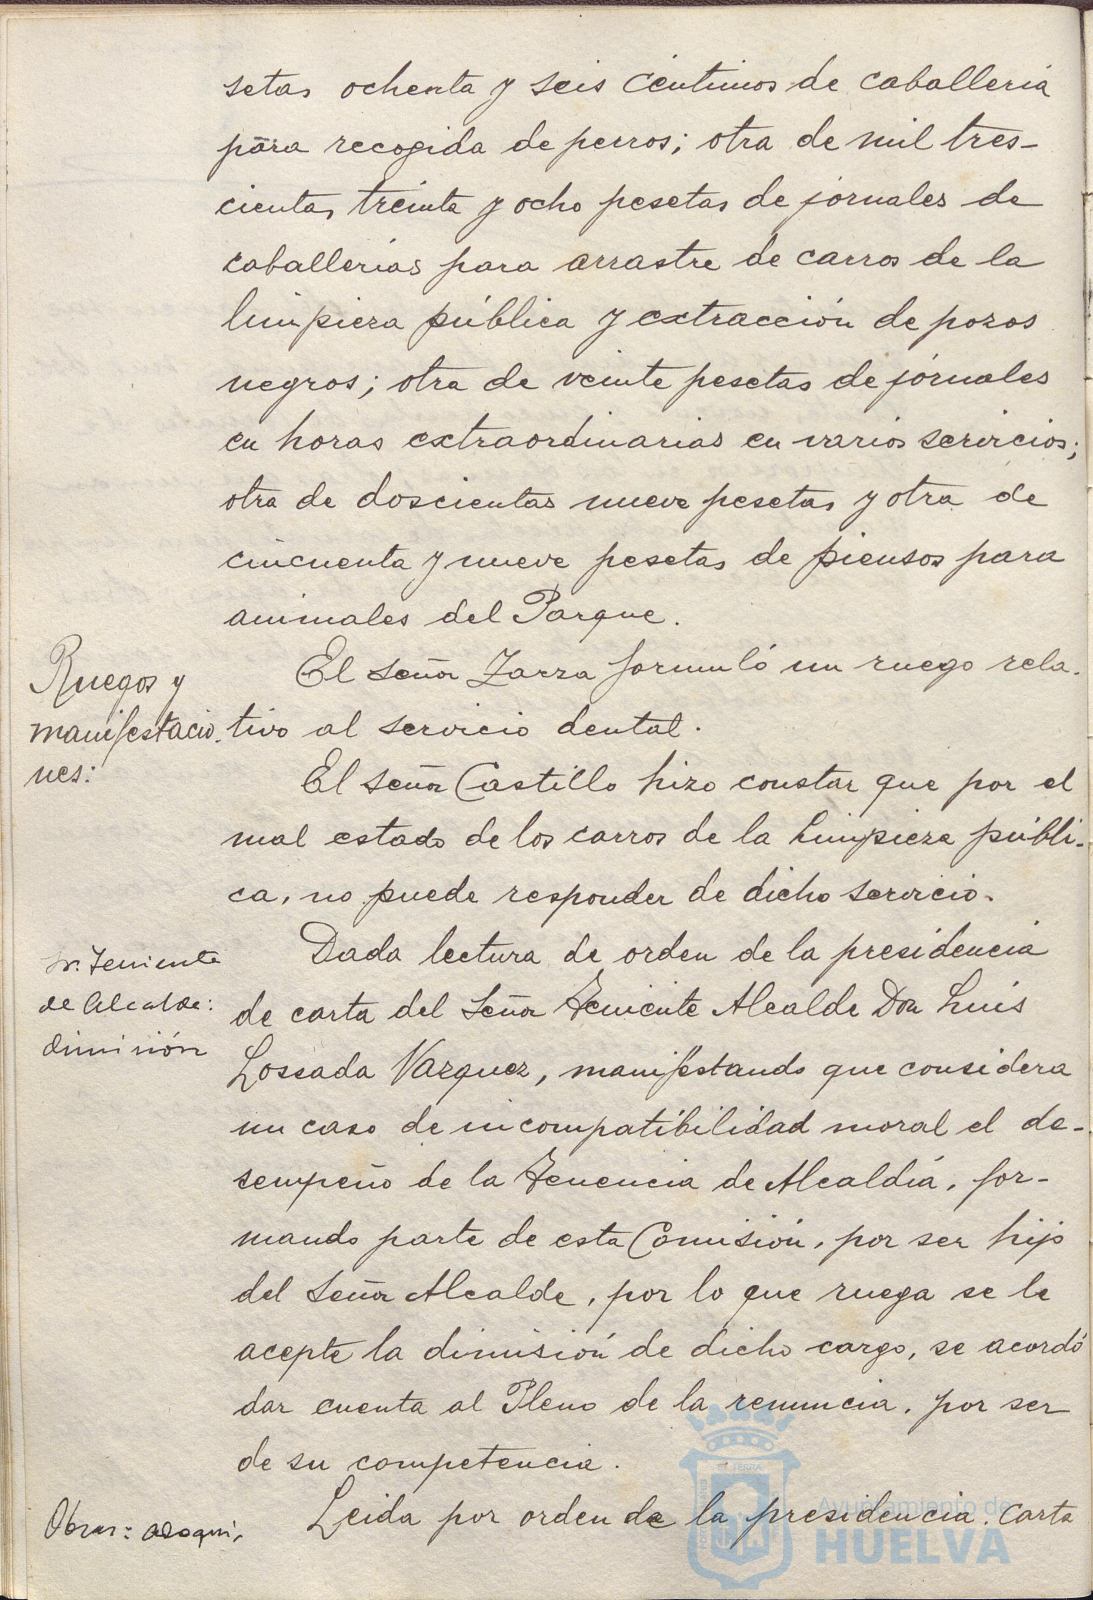 setas ochenta y seis céntimos de caballería
para recogida de perros; otra de mil tres-
cientas treinta y ocho pesetas de jornales de
caballerías para arrastre de carros de la
limpieza pública y extracción de pozos
negros; otra de veinte pesetas de jornales
en horas extraordinarias en varios servicios;
otra de doscientas nueve pesetas y otra de
cincuenta y nueve pesetas de piensos para
animales del Parque.
Ruegos y
manifestacio-
nes:
El señor Zarza formuló un ruego rela-
tivo al servicio dental.
El señor Castillo hizo constar que por el
mal estado de los carros de la limpieza públi-
ca, no puede responder de dicho servicio.
Sr. Teniente
de Alcalde:
dimisión
Dada lectura de orden de la presidencia
de carta del Señor Teniente Alcalde Don Luis
Lossada Vazquez, manifestando que considera
un caso de incompatibilidad moral el de-
sempeño de la Tenencia de Alcaldía, for-
mando parte de esta Comisión, por ser hijo
del Señor Alcalde, por lo que ruega se le
acepte la dimisión de dicho cargo, se acordó
dar cuenta al Pleno de la renuncia, por ser
de su competencia.
Obras: adoqui-
Leida por orden de la presidencia. carta
Ayuntamiento de
HUELVA